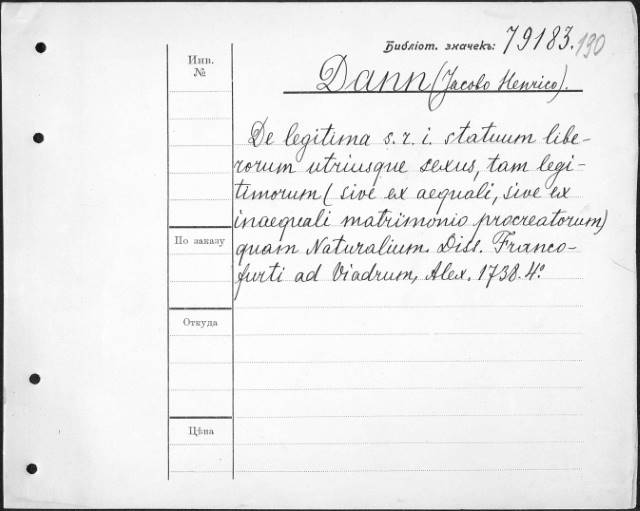 Библіот. значекъ: 79183. 130
Инв.
№
Dann (Jacobo Henrico).
De legitima s. r. i. statuum libe-
rorum utriusque sexus, tam legi-
timorum (sive ex aequali, sive ex
inaequali matrimonio procreatorum)
По заказу
quam Naturalium. Diss. Franco-
furti ad Viadrum, Alex. 1738. 4º
Откуда
Цѣна